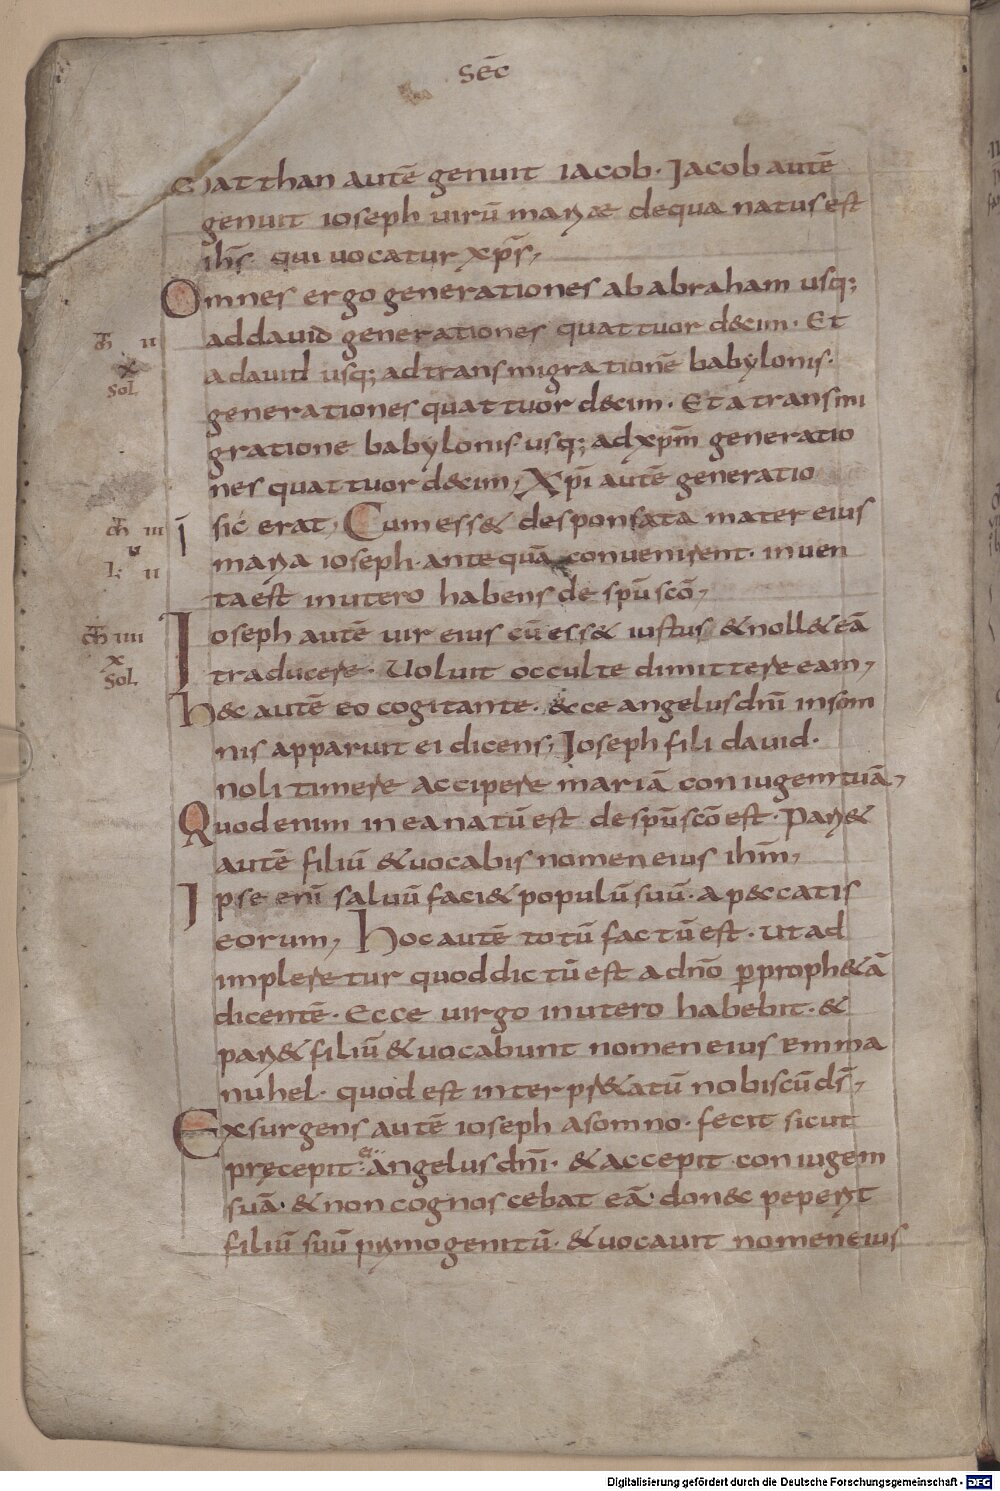 sēc
Matthan autē genuit iacob. Jacob autē
genuit ioseph uirū mariæ dequa natus est
ihs̄ qui uocatur xp̄s,
Omnes ergo generationes ab abraham usq;
addauid generationes quattuor d&cim. Et
adauid usq; adtransmigrationē babylonis.
generationes quattuor d&cim. Et atransmi
gratione babylonis usq; adxp̄m generatio
nes quattuor d&cim, Xp̄i autē generatio
sic erat, Cum ess& desponsata mater eius
maria ioseph. ante quā conuenirent. inuen
ta est inutero habens de sp̄u scō,
Ioseph autē uir eius cū ess& iustus & noll& eā
traducere. Uoluit occulte dimittere eam,
h&c autē eo cogitante. &cce angelus dn̄i insom
nis apparuit ei dicens, Joseph fili dauid.
noli timere accipere mariā coniugem tuā,
Quod enim in ea natū est de sp̄u scō est. Pari&
autē filiū & uocabis nomen eius ihm̄,
Ipse eni̅ saluū faci& populū suū. a p&ccatis
eorum, Hoc autē totū factū est. ut ad
impleretur quod dictū est a dn̄o ꝑ proph&ā
dicentē. Ecce uirgo inutero habebit. &
pari& filiū & uocabunt nomen eius Emma
nuhel. quod est interpr&atū nobiscū ds̄,
Exsurgens autē ioseph asomno. fecit sicut
pręcepit ei angelus dn̄i. & accepit coniugem
suā. & non cognoscebat eā. don&c peperit
filiū suū primogenitū. & uocauit nomen eius
II
x
sol
III
ī
u
L:
II
IIII
x
sol
Digitalisierung gefördert durch die Deutsche Forschungsgemeinschaft - DFG